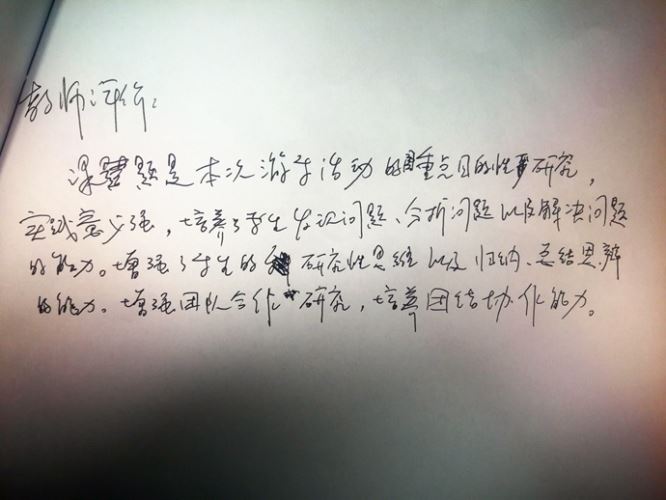 教师评价：
课题是本次游学活动的重点目的性研究，
实践意义强，培养了学生发现问题、分析问题以及解决问题
的能力。增强了学生的研究性思维以及归纳、总结思辨
的能力。增强团队合作研究，培养团结协作能力。